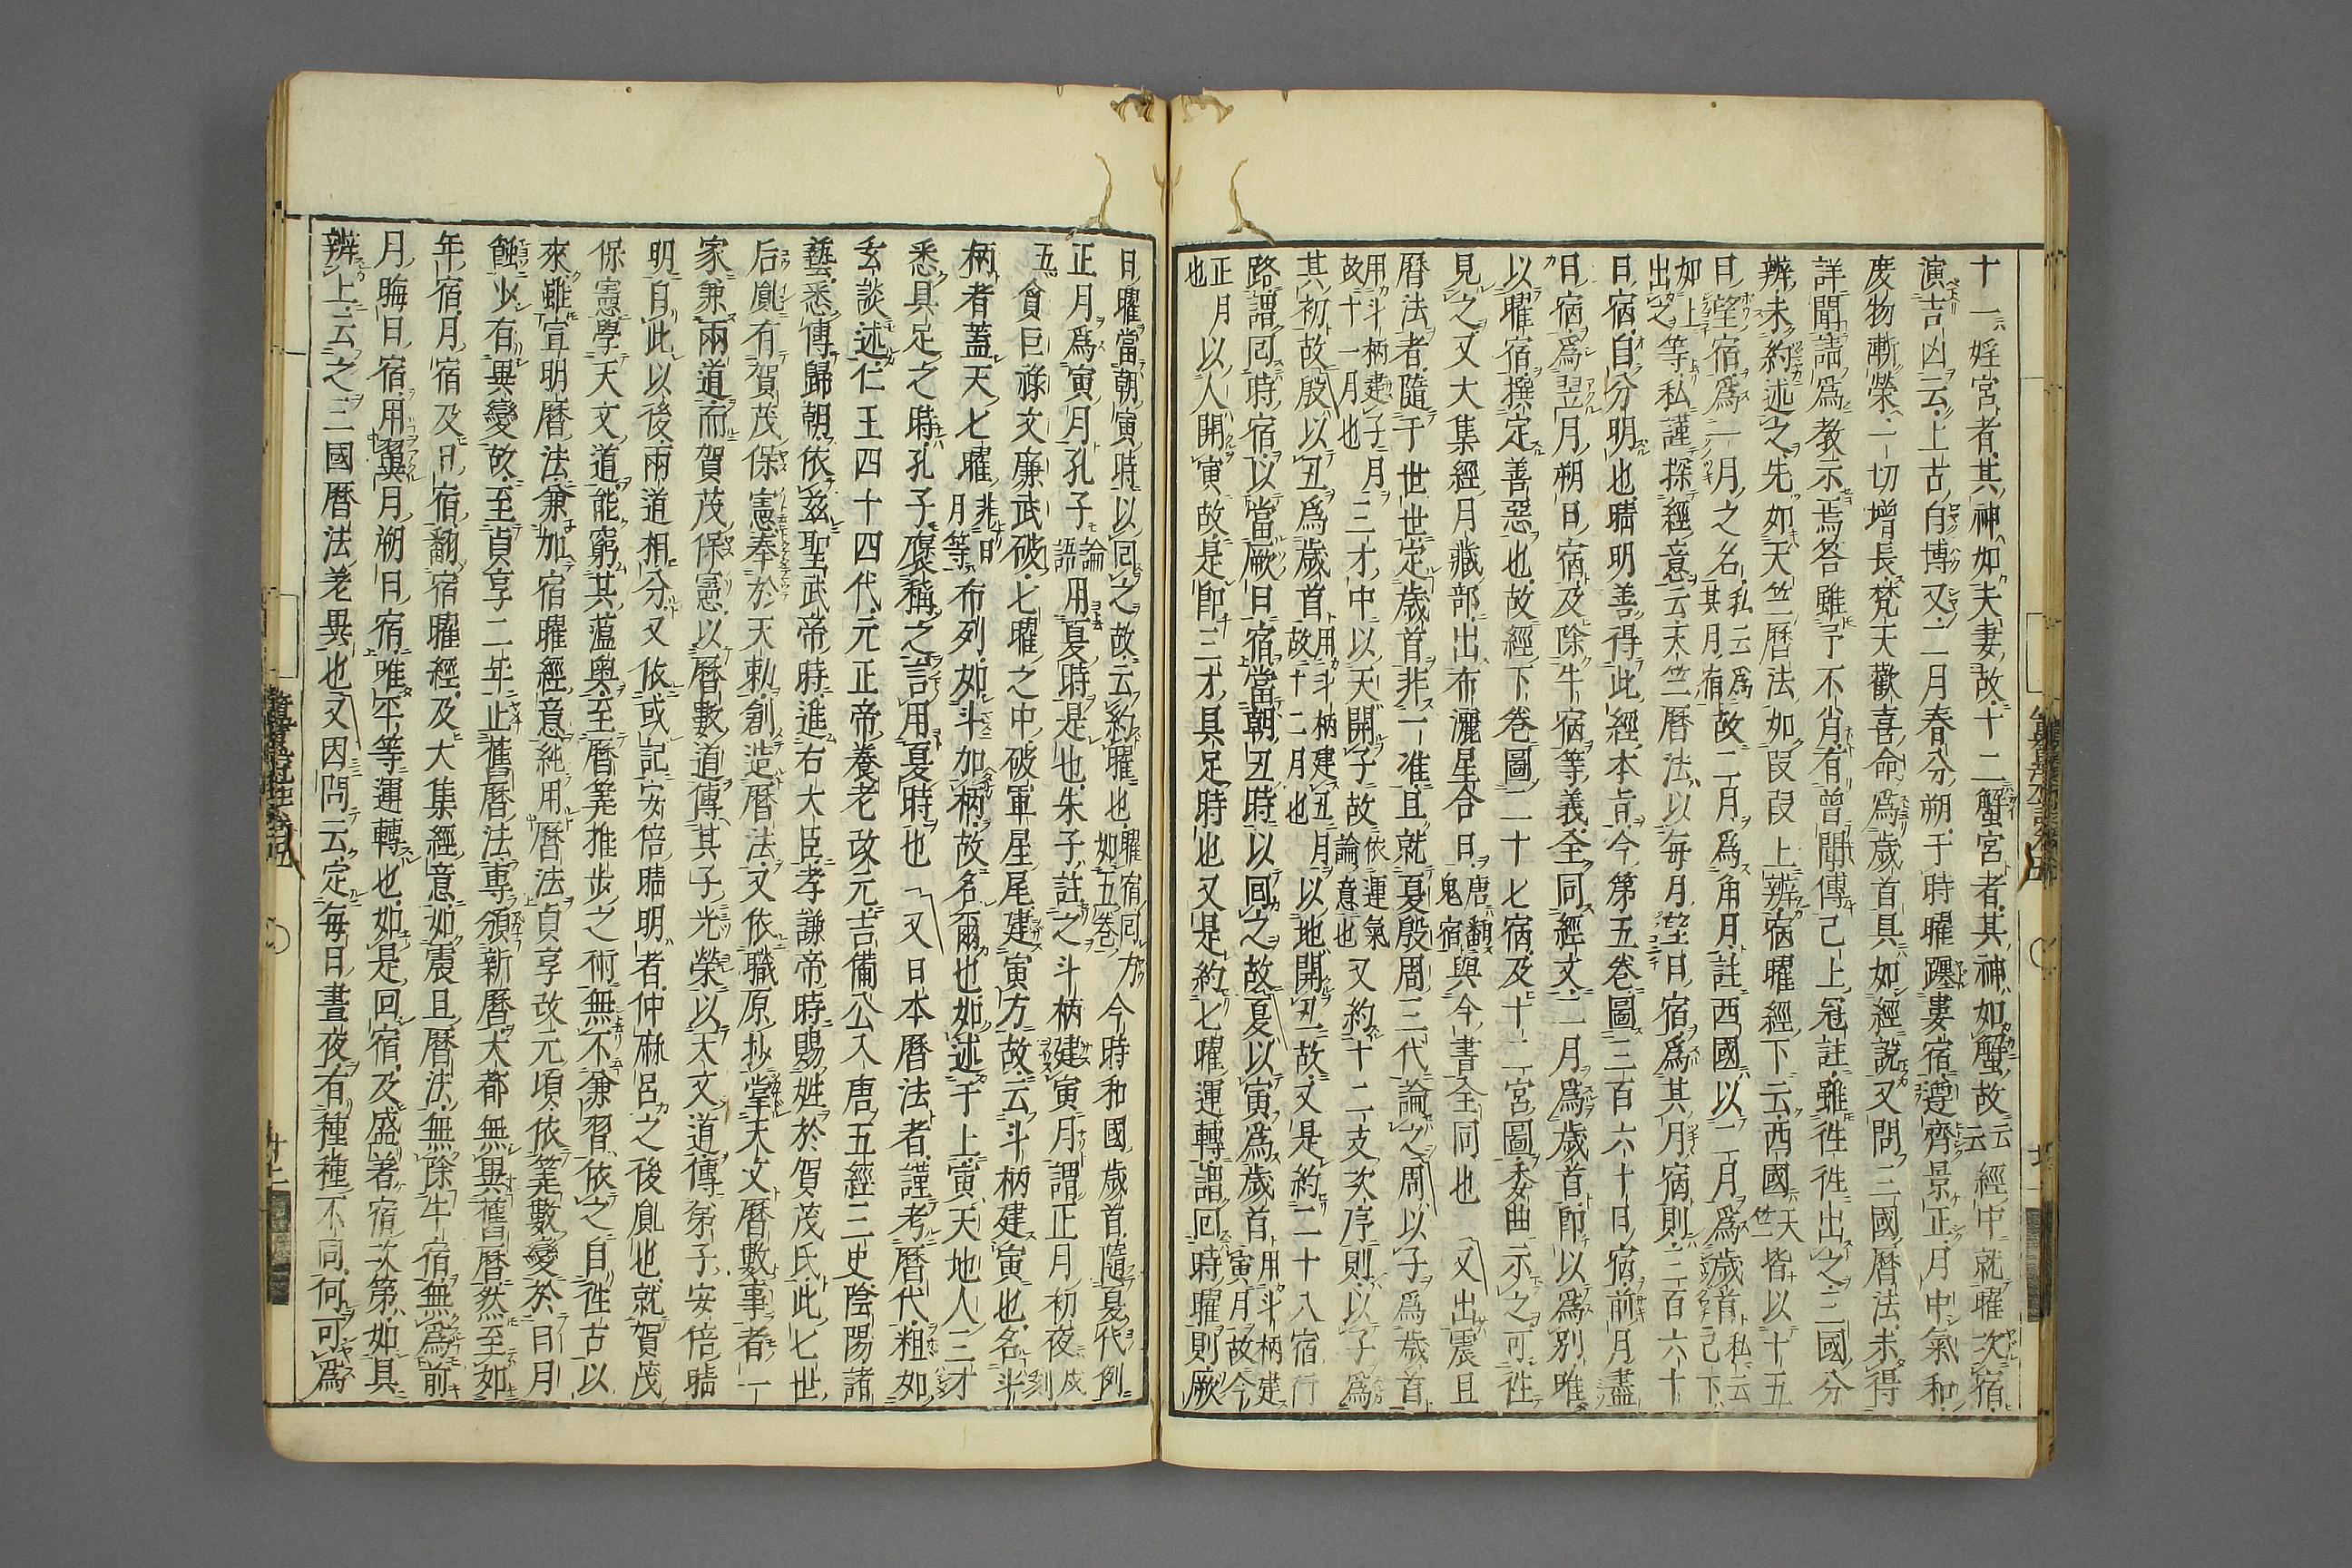 十一婬宮者其神如夫妻故十二蟹宮者其神如蟹故云云經中就曜次宿
演吉凶云上古白博又二月春分朔于時曜躔婁宿遵齊景正月中氣和
度物漸榮一切增長梵天歡喜命為歲首具如經說又問三國曆法未得
詳聞請為教示焉答雖予不肖有曾聞傳己上冠註雖徃徃出之三國分
辨未約述之先如天竺曆法如段段上辨宿曜經下云西國天竺皆以十五
日望宿爲一月之名私云爲其月宿故二月爲角月註西國以二月爲歲首私云己下
如上出之等私謹探經意云天竺曆法以每月望日宿爲其月宿則三百六十
日宿自分明也晴明善得此經本旨今第五卷圖三百六十日宿前月盡
日宿爲翌月朔日宿及除牛宿等義全同經文二月爲歲首卽以爲別唯
以曜宿撰定善惡也故經下卷圖二十七宿及十二宮圖委曲示之可徃
見之又大集經月藏部出布灑星合日唐翻鬼宿與今書全同也又出震旦
曆法者隨于世世定歲首非一准且就夏殷周三代論之周以子爲歲首
用斗柄建子月故十一月也三才中以天開子故依運氣論意也又約十二支次序則以子爲
其初故殷以丑爲歲首用斗柄建丑月故十二月也以地開丑故又是約二十八宿行
路謂囘時宿以當厥日宿當朝丑時以囘之故夏以寅爲歲首用斗柄建寅月故今
正月也以人開寅故是卽三才具足時也又是約七曜運轉謂囘時曜則厥
日曜當朝寅時以囘之故云約曜也曜宿囘方如五卷今時和國歲首隨夏代例
正月爲寅月孔子論語用夏時是也朱子註之斗柄建寅月謂正月初夜戌刻
五貪巨祿文廉武破七曜之中破軍星尾建寅方故云斗柄建寅也名斗
柄者蓋天七曜非日月等布列如斗加柄故名爾也如述于上寅天地人三才
悉具足之時孔子褒稱之言用夏時也又日本曆法者謹考曆代粗如
玄談述仁王四十四代元正帝養老改元吉備公入唐五經三史陰陽諸
藝悉傳歸朝依茲聖武帝時進右大臣孝謙帝時賜姓於賀茂氏此七世
后胤有賀茂保憲奉於天勅創造曆法又依職原抄掌天文曆數事者一
家兼兩道而賀茂保憲以曆數道傳其子光榮以天文道傳弟子安倍晴
明自此以後兩道相分又依或記安倍晴明者仲麻呂之後胤也就賀茂
保憲學天文道能窮其蘊奥至曆筭推步之術無不兼習依之自徃古以
來雖宣明曆法兼加宿曜經意純用曆法貞享改元頃依筭數變於日月
蝕少有異變故至貞享二年止舊曆法專頒新曆大都無異舊曆然至如
年宿月宿及日宿翻宿曜經及大集經意如震旦曆法無除牛宿無爲前
月晦日宿用翌月朔日宿唯牢等運轉也如是回宿及盛著宿次第如具
辨上云之三國曆法差異也又因問云定每日晝夜有種種不同何可爲